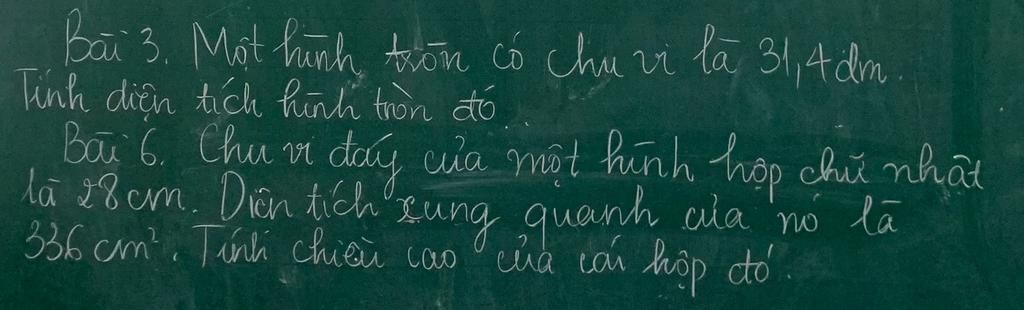 Bài 3. Một hình tròn có chu vi là 31,4dm.
Tính diện tích hình tròn đó
Bài 6. Chu vi đáy của một hình hộp chữ nhật
là 28cm. Diện tích xung quanh của nó là
336 cm². Tính chiều cao của cái hộp đó.